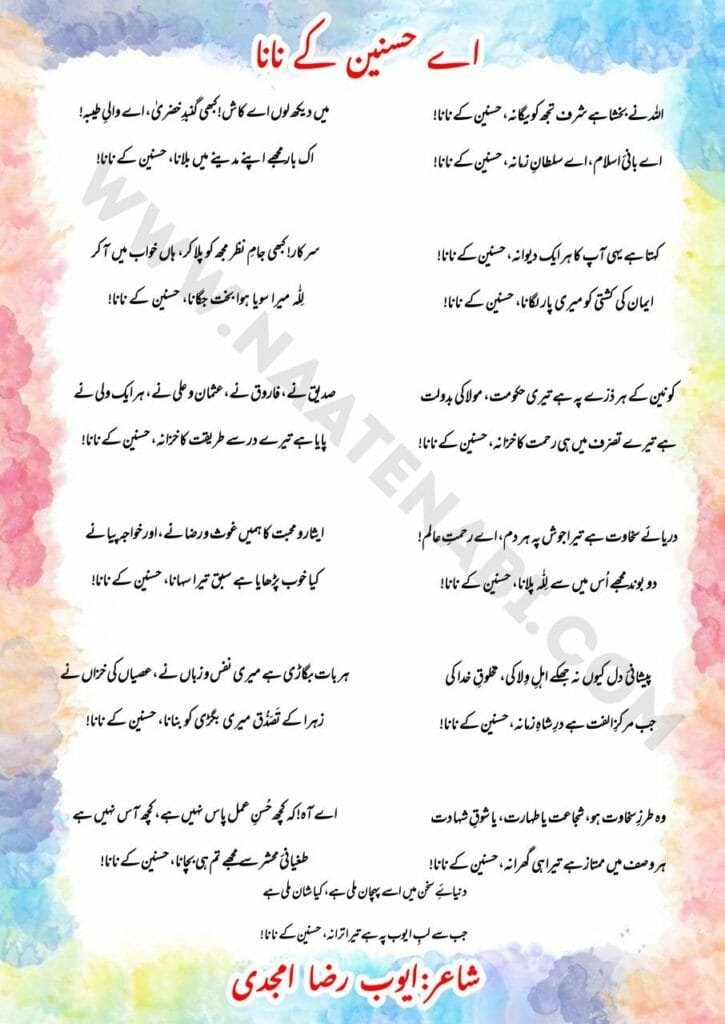 اے حسنین کے نانا
اللہ نے بخشا ہے شرف تجھ کو یگانہ، حسنین کے نانا!
اے بانیٔ اسلام، اے سلطانِ زمانہ، حسنین کے نانا!
کہتا ہے یہی آپ کا ہر ایک دیوانہ، حسنین کے نانا!
ایمان کی کشتی کو میری پار لگانا، حسنین کے نانا!
کونین کے ہر ذرّے پہ ہے تیری حکومت، مولا کی بدولت
ہے تیرے تصرف میں ہی رحمت کا خزانہ، حسنین کے نانا!
دریائے سخاوت ہے تیرا جوش پہ ہر دم، اے رحمتِ عالم!
دو بوند مجھے اُس میں سے لِلّٰہ پلانا، حسنین کے نانا!
پیشانیٔ دل کیوں نہ جھکے اہلِ وِلا کی، مخلوقِ خدا کی
جب مرکزِ الفت ہے درِ شاہِ زمانہ، حسنین کے نانا!
وہ طرزِ سخاوت ہو، شجاعت یا طہارت، یا شوقِ شہادت
ہر وصف میں ممتاز ہے تیرا ہی گھرانہ، حسنین کے نانا!
میں دیکھ لوں اے کاش! کبھی گنبدِ خضریٰ، اے والیِ طیبہ!
اک بار مجھے اپنے مدینے میں بلانا، حسنین کے نانا!
سرکار! کبھی جامِ نظر مجھ کو پلا کر، ہاں خواب میں آ کر
لِلّٰہ میرا سویا ہوا بخت جگانا، حسنین کے نانا!
صدیق نے، فاروق نے، عثمان و علی نے، ہر ایک ولی نے
پایا ہے تیرے در سے طریقت کا خزانہ، حسنین کے نانا!
ایثار و محبت کا ہمیں غوث و رضا نے، اور خواجہ پیا نے
کیا خوب پڑھایا ہے سبق تیرا سہانا، حسنین کے نانا!
ہر بات بگاڑی ہے میری نفس و زباں نے، عصیاں کی خزاں نے
زہرا کے تَصَدُّق میری بگڑی کو بنانا، حسنین کے نانا!
اے آہ! کہ کچھ حُسنِ عمل پاس نہیں ہے، کچھ آس نہیں ہے
طغیانیٔ محشر سے مجھے تم ہی بچانا، حسنین کے نانا!
دنیائے سخن میں اسے پہچان ملی ہے، کیا شان ملی ہے
جب سے لبِ ایوب پہ ہے تیرا ترانہ، حسنین کے نانا!
شاعر: ایوب رضا امجدی
WWW.NAATENABI.COM